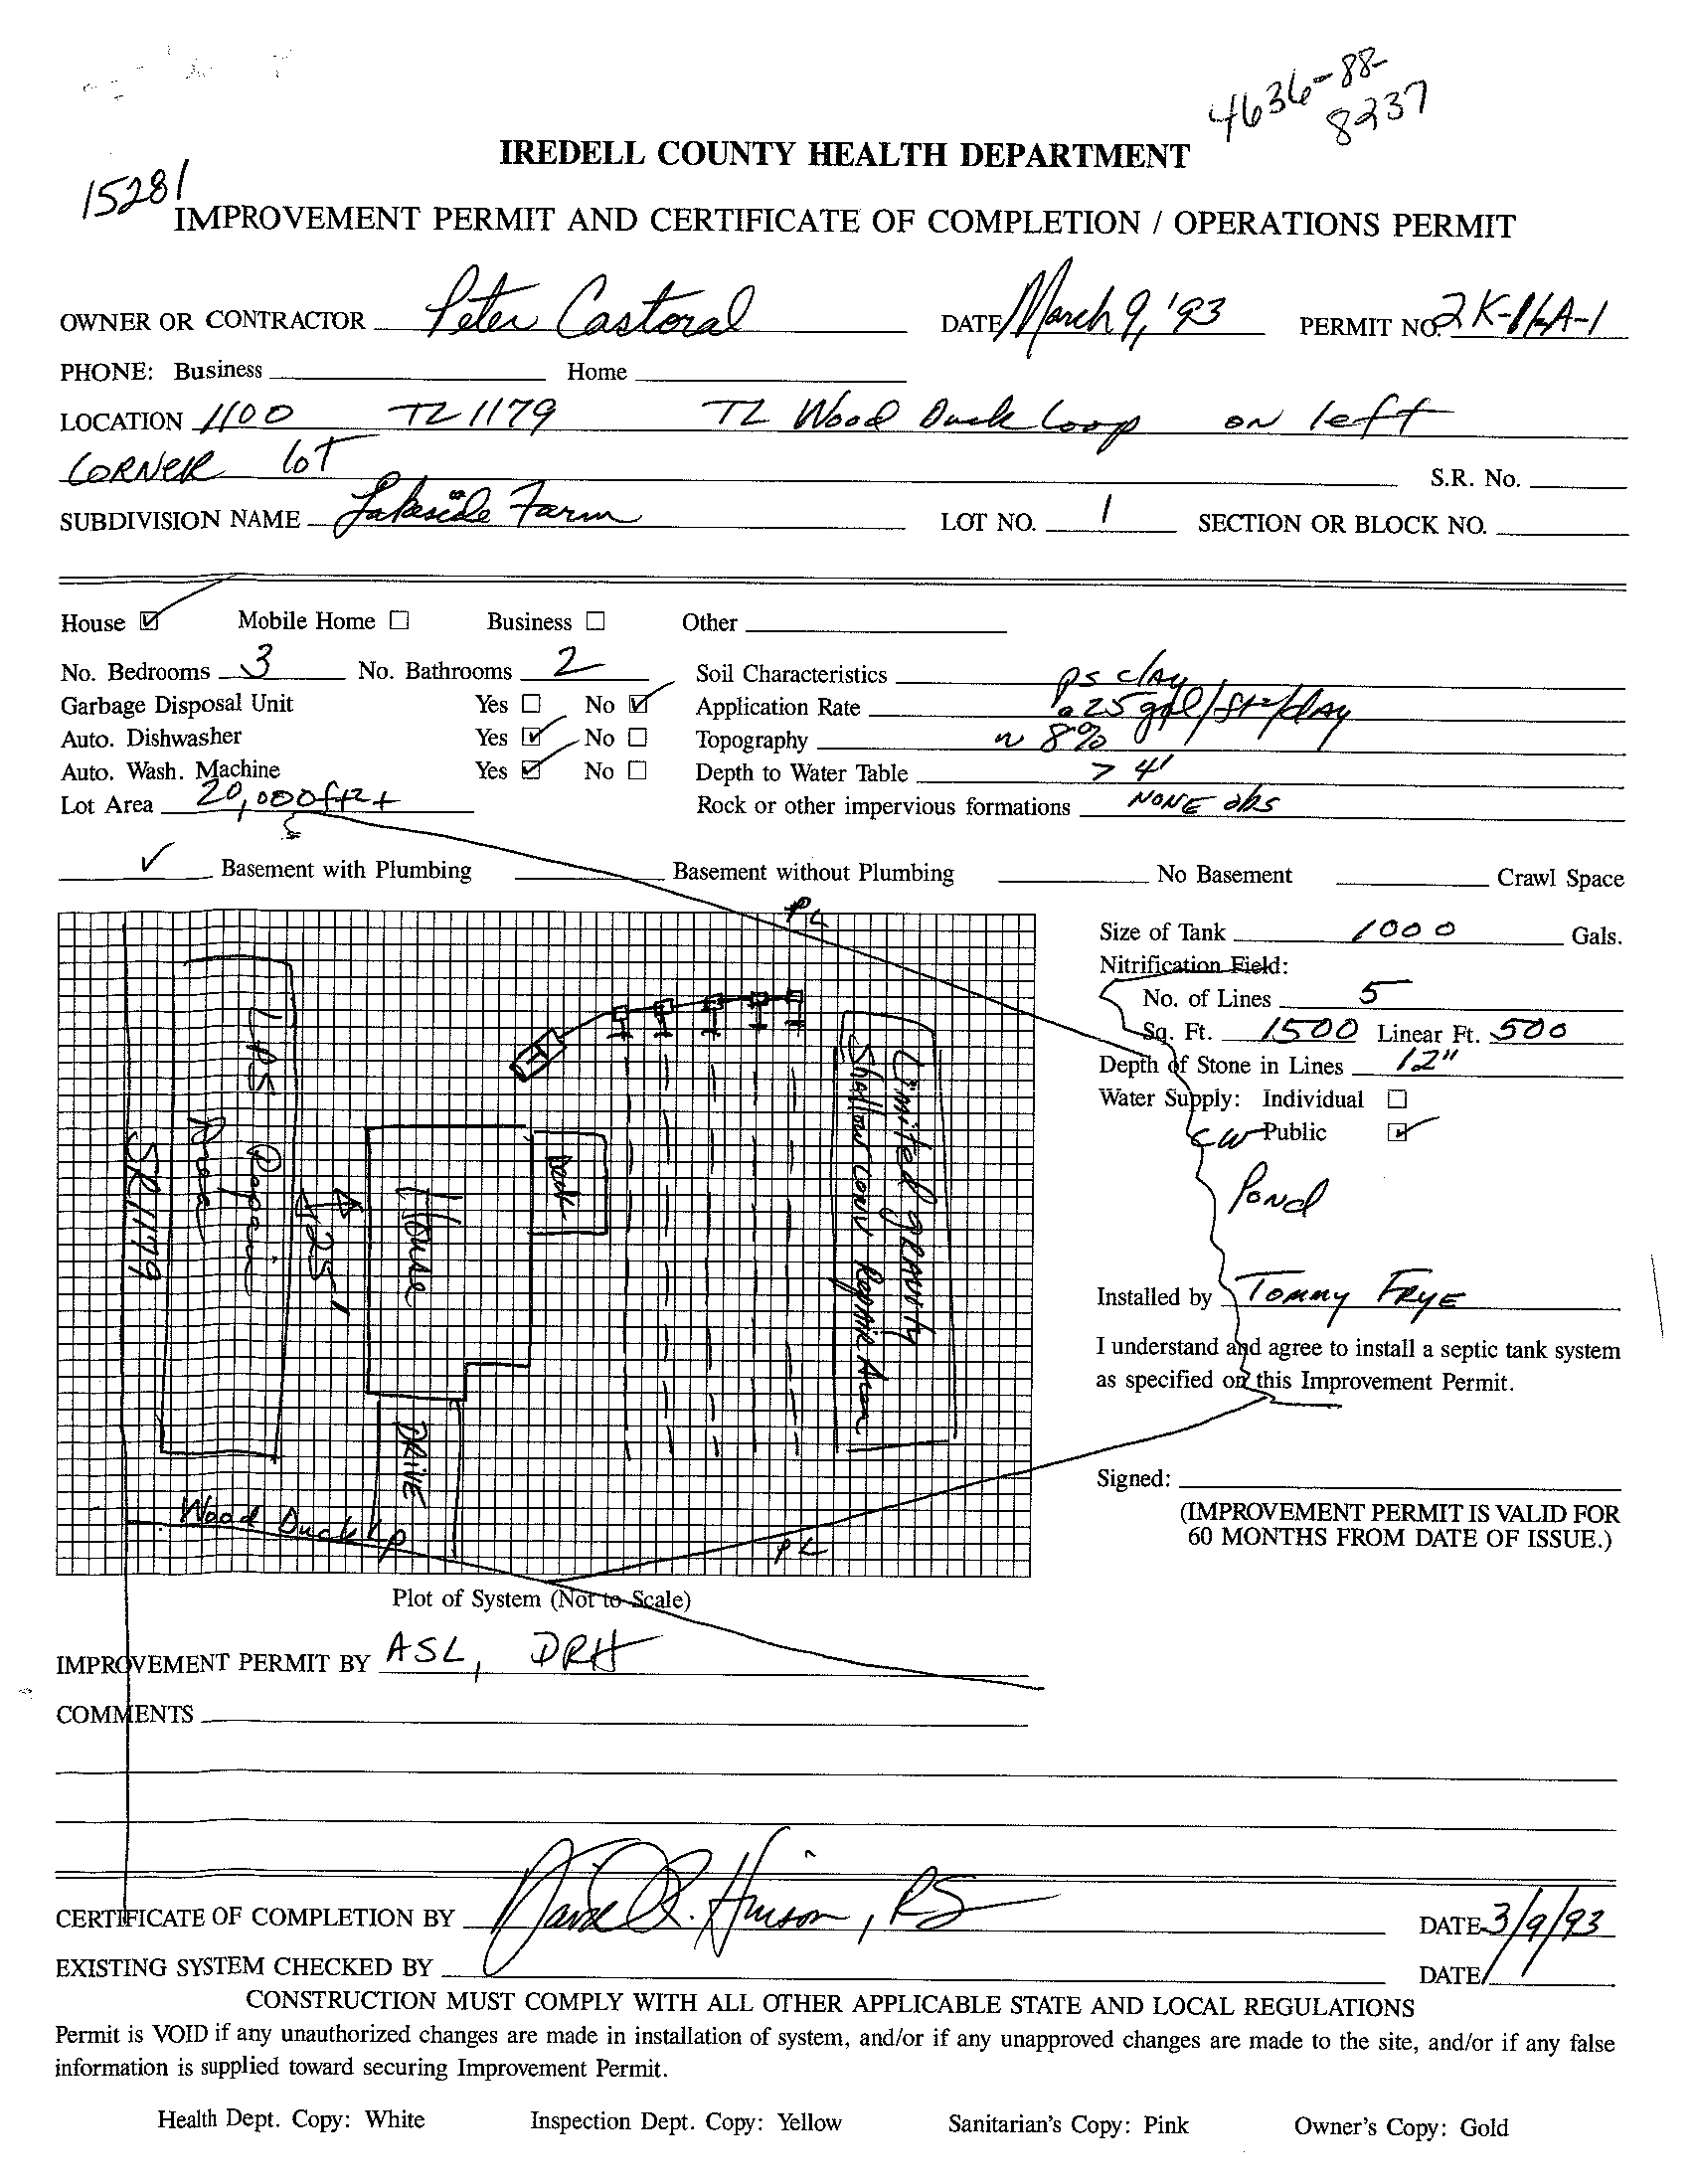 4636-88-
8237
15281
IREDELL COUNTY HEALTH DEPARTMENT
IMPROVEMENT PERMIT AND CERTIFICATE OF COMPLETION / OPERATIONS PERMIT
OWNER OR CONTRACTOR Peter Castoral DATE March 9, '93 PERMIT NO. 2K-11-A-1
PHONE: Business Home
LOCATION 1100 TL 1179 TL Wood Duck Loop on left
CORNER LOT S.R. No.
SUBDIVISION NAME Lakeside Farm LOT NO. 1 SECTION OR BLOCK NO.
House ☑ Mobile Home ☐ Business ☐ Other
No. Bedrooms 3 No. Bathrooms 2 Soil Characteristics PS clay
Garbage Disposal Unit Yes ☐ No ☑ Application Rate .25 gal/ft2/day
Auto. Dishwasher Yes ☑ No ☐ Topography ~ 8%
Auto. Wash. Machine Yes ☑ No ☐ Depth to Water Table > 4'
Lot Area 20,000 ft2+ Rock or other impervious formations NONE obs
✓ Basement with Plumbing Basement without Plumbing No Basement Crawl Space
PL
Size of Tank 1000 Gals.
Nitrification Field:
No. of Lines 5
Sq. Ft. 1500 Linear Ft. 500
Depth of Stone in Lines 12"
Water Supply: Individual ☐
CW Public ☑
Pond
LPS Repair
Area
SR 1179
House
Deck
Limited gravity
Shallow conv Repair Area
DRIVE
Wood Duck Lp
PL
Installed by TOMMY FRYE
I understand and agree to install a septic tank system
as specified on this Improvement Permit.
Signed:
(IMPROVEMENT PERMIT IS VALID FOR
60 MONTHS FROM DATE OF ISSUE.)
Plot of System (Not to Scale)
IMPROVEMENT PERMIT BY ASL, DRH
COMMENTS
CERTIFICATE OF COMPLETION BY David R. Hinson, RS DATE 3/9/93
EXISTING SYSTEM CHECKED BY DATE
CONSTRUCTION MUST COMPLY WITH ALL OTHER APPLICABLE STATE AND LOCAL REGULATIONS
Permit is VOID if any unauthorized changes are made in installation of system, and/or if any unapproved changes are made to the site, and/or if any false
information is supplied toward securing Improvement Permit.
Health Dept. Copy: White Inspection Dept. Copy: Yellow Sanitarian's Copy: Pink Owner's Copy: Gold